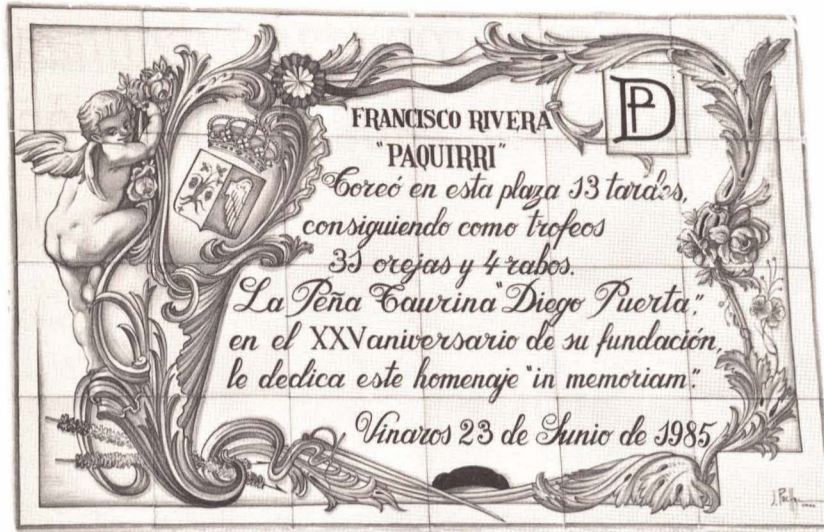 FRANCISCO RIVERA
"PAQUIRRI"
Toreó en esta plaza 13 tardes,
consiguiendo como trofeos
31 orejas y 4 rabos.
La Peña Taurina "Diego Puerta",
en el XXV aniversario de su fundación,
le dedica este homenaje "in memoriam".
Vinaros 23 de Junio de 1985
DP